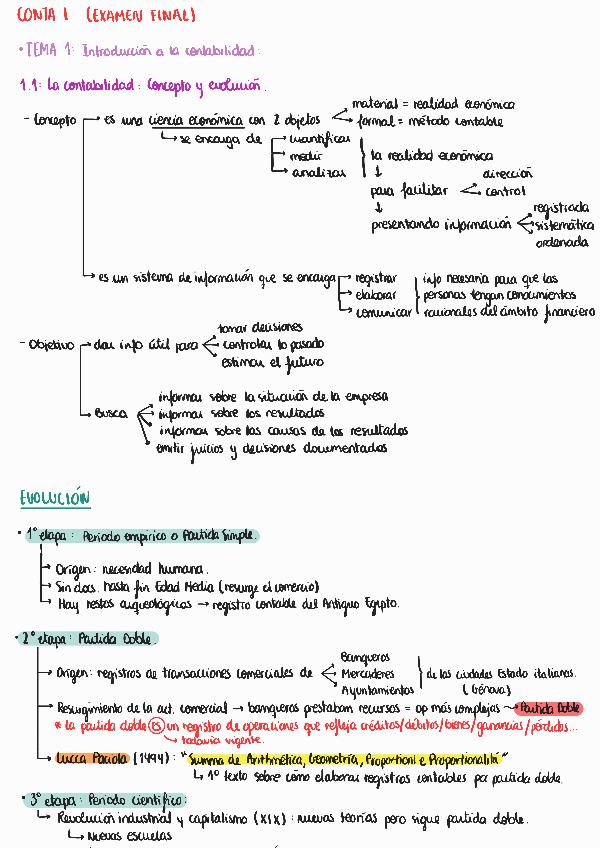 CONTA 1 (EXAMEN FINAL)
• TEMA 1: Introducción a la contabilidad:
1.1: La contabilidad: Concepto y evolución.
- Concepto → es una ciencia económica con 2 objetos
material = realidad económica
formal = método contable
↳ se encarga de → cuantificar
→ medir
→ analizar
la realidad económica
↓
para facilitar
dirección
control
↓
presentando información
registrada
sistemática
ordenada
→ es un sistema de información que se encarga → registrar
→ elaborar
→ comunicar
info necesaria para que las
personas tengan conocimientos
racionales del ámbito financiero
- Objetivo → dar info útil para
tomar decisiones
controlar lo pasado
estimar el futuro
→ Busca
informar sobre la situación de la empresa
informar sobre los resultados
informar sobre las causas de los resultados
emitir juicios y decisiones documentadas
EVOLUCIÓN
• 1º etapa: Periodo empírico o Partida Simple.
→ Origen: necesidad humana.
→ Sin docs. hasta fin Edad Media (resurge el comercio)
→ Hay restos arqueológicos → registro contable del Antiguo Egipto.
• 2º etapa: Partida Doble.
→ Origen: registros de transacciones comerciales de
Banqueros
Mercaderes
Ayuntamientos
de las ciudades Estado italianas.
(Génova)
→ Resurgimiento de la act. comercial → banqueros prestaban recursos = op más complejas → Partida Doble
* la partida doble es un registro de operaciones que refleja créditos/débitos/bienes/ganancias/pérdidas...
→ todavía vigente.
→ Lucca Paciola (1494): "Summa de Arithmética, Geometría, Proportioni e Proportionalitá"
↳ 1º texto sobre cómo elaborar registros contables por partida doble.
• 3º etapa: Periodo científico:
↳ Revolución industrial y capitalismo (XIX): nuevas teorías pero sigue partida doble.
↳ Nuevas escuelas